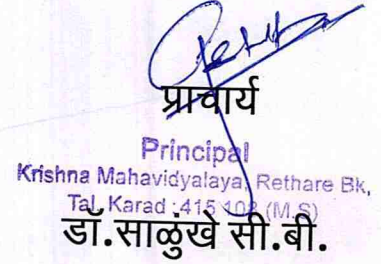 प्राचार्य
Principal
Krishna Mahavidyalaya, Rethare Bk,
Tal. Karad :415 108 (M.S)
डॉ.साळुंखे सी.बी.